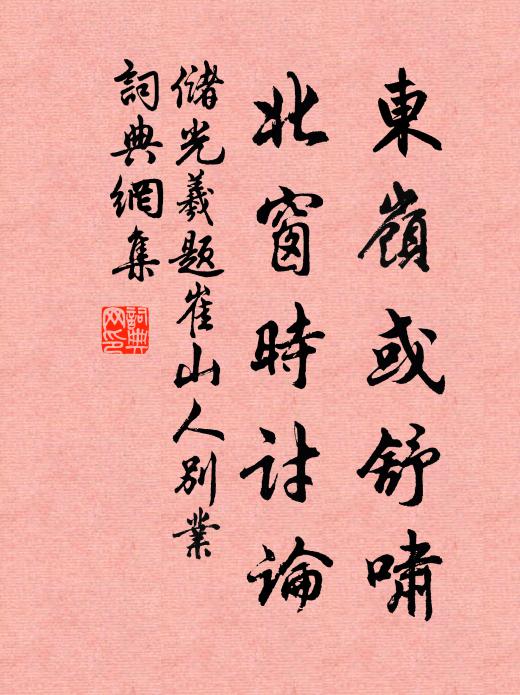 東嶺或舒嘯
北窗時討論
儲光羲題崔山人別業
詞典網集
詞典
网印